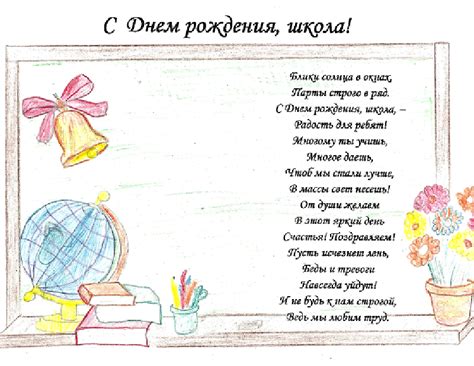 С Днем рождения, школа!
Блики солнца в окнах,
Парты строго в ряд.
С Днем рождения, школа, –
Радость для ребят!
Многому ты учишь,
Многое даешь,
Чтоб мы стали лучше,
В массы свет несешь!
От души желаем
В этот яркий день
Счастья! Поздравляем!
Пусть исчезнет лень,
Беды и тревоги
Навсегда уйдут!
И не будь к нам строгой,
Ведь мы любим труд.